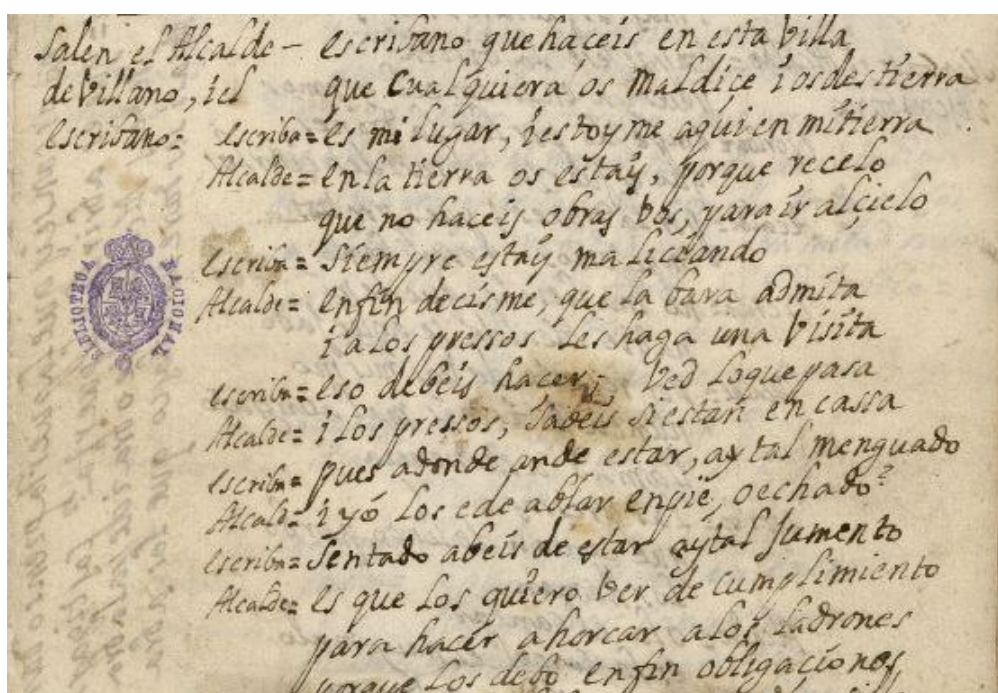 Salen el Alcalde – escribano que haceis en esta billa
de billano, i el que cualquiera os maldiçe i os destierra
escribano= escriba= es mi lugar, i estoyme aqui en mi tierra
Alcalde= en la tierra os estaÿ, porque recelo
que no haceis obras bos, para ir al çielo
escriba= siempre estaÿ maliciando
Alcalde= en fin decisme, que la bara admita
i a los pressos les haga una bisita
escriba= eso debeis hacer; bed lo que pasa
Alcalde= i los pressos, sabeis si estan en cassa
escriba= pues adonde ande estar, ay tal menguado
Alcald= i yó los e de ablar en pie, o echado?
escriba= sentado abeis de estar aytal jumento
Alcalde= es que los quiero ber de cumplimiento
para hacer ahorcar a los ladrones
porque los debo en fin obligaciones
BIBLIOTECA NACIONAL